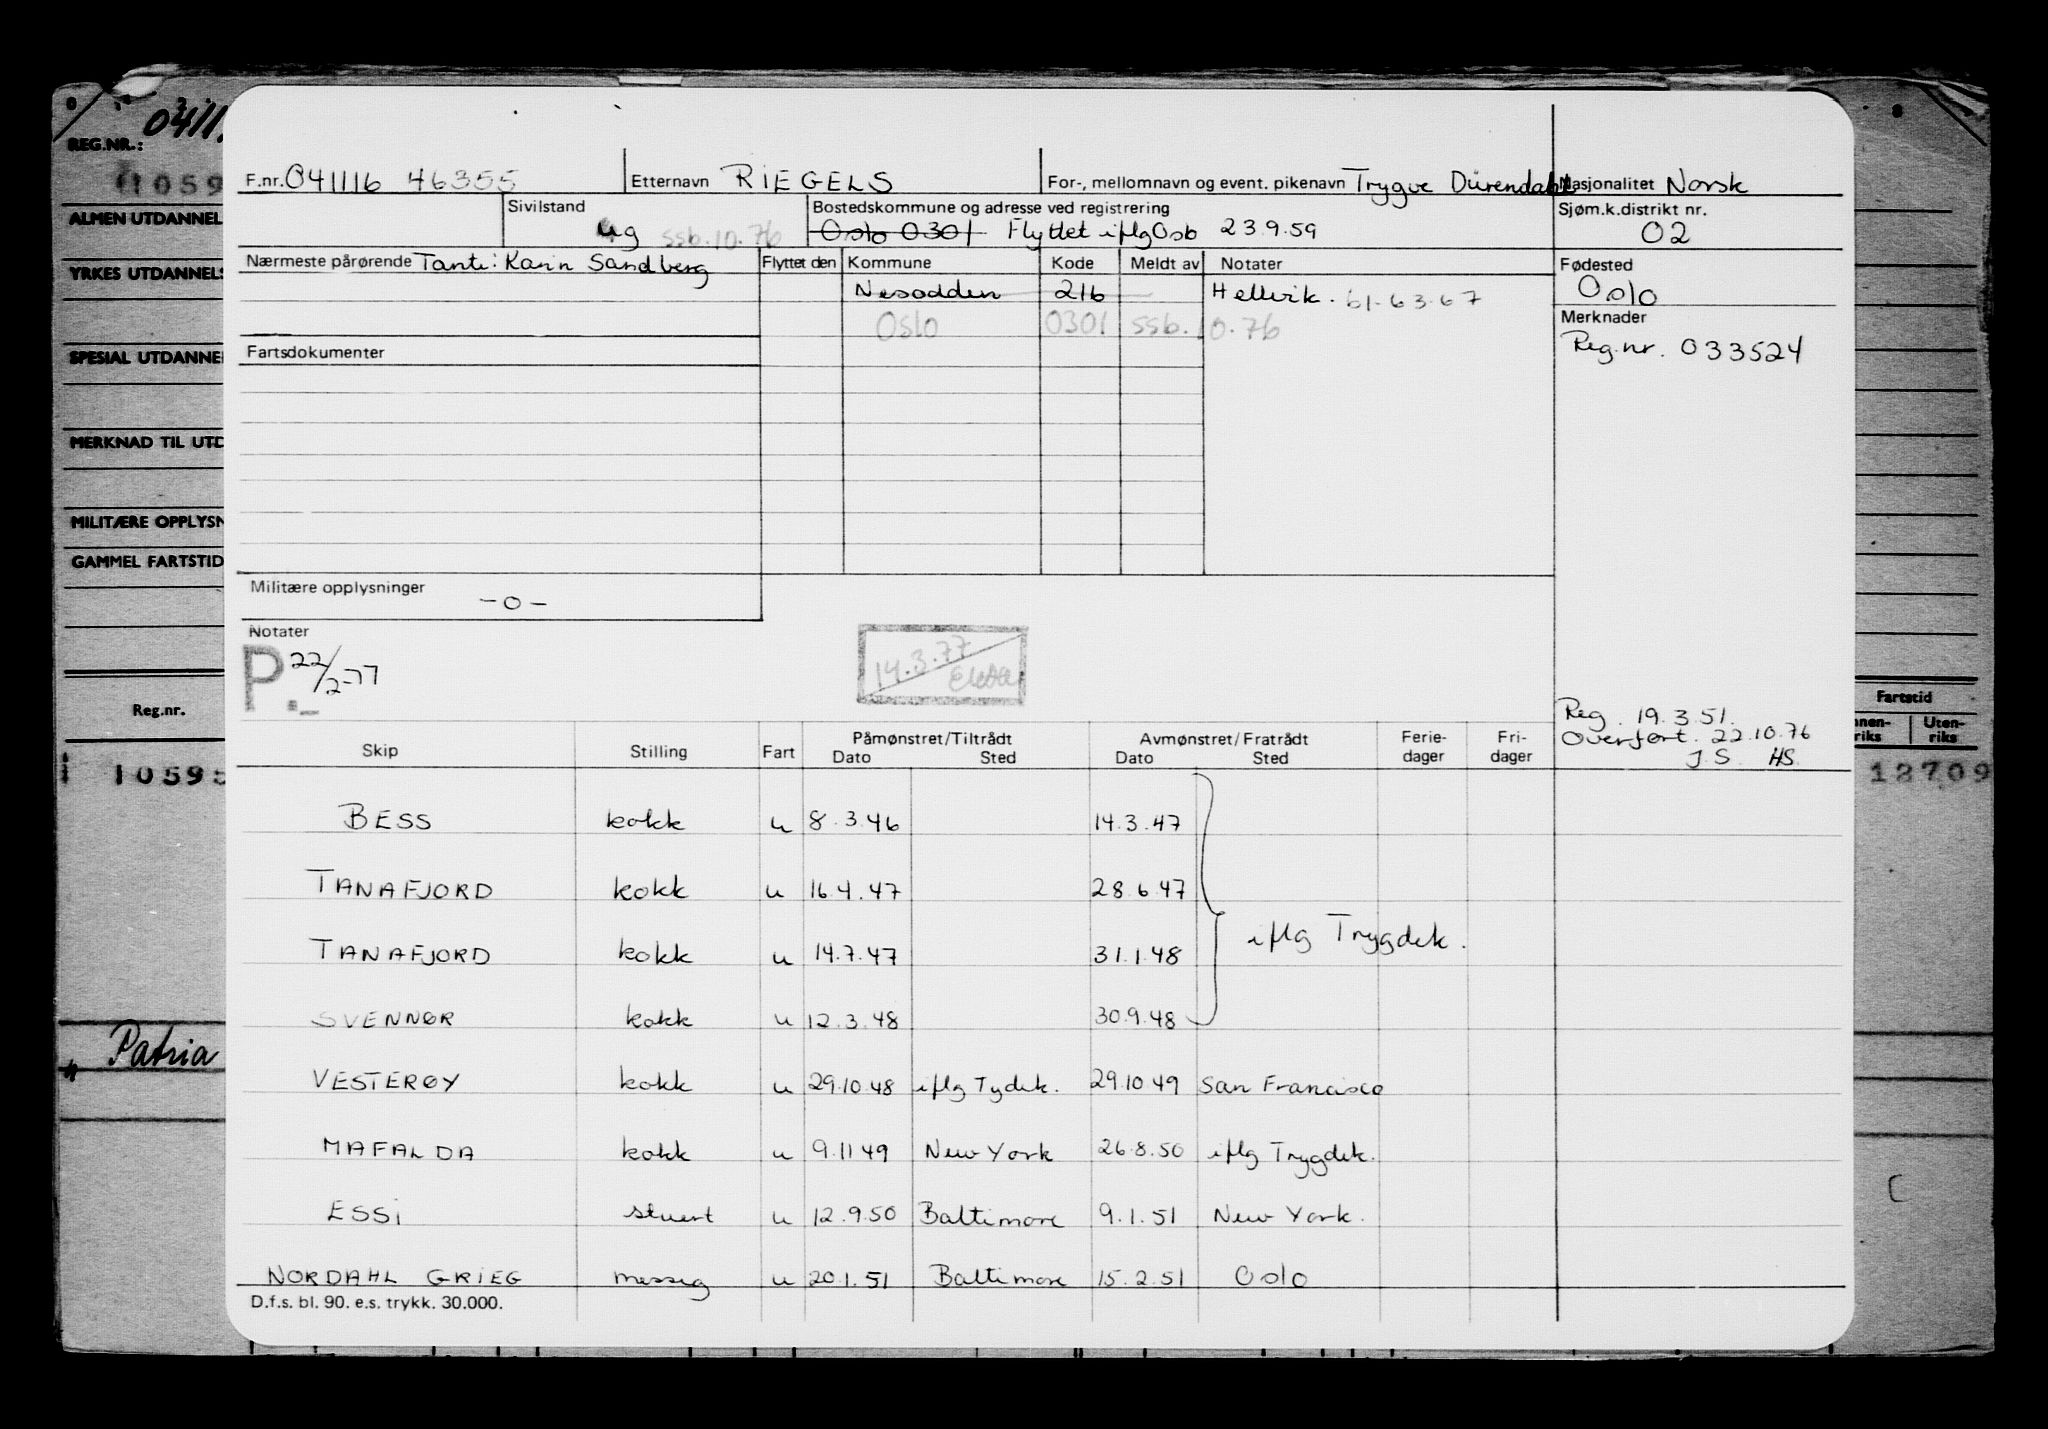 REG.NR.:
F.nr. 041116 46355 Etternavn RIEGELS For-, mellomnavn og event. pikenavn Trygve Dürendahl Nasjonalitet Norsk
1059
ALMEN UTDANNEL
Sivilstand Bostedskommune og adresse ved registrering Sjøm.k.distrikt nr.
ug ssb.10.76 Oslo 0301 Flyttet iflg Osb 23.9.59 02
YRKES UTDANNELS
Nærmeste pårørende Tante: Karin Sandberg Flyttet den Kommune Kode Meldt av Notater Fødested
Nesodden 216 Hellvik. 61-63-67 Oslo
Oslo 0301 ssb.10.76 Merknader
SPESIAL UTDANNE
Fartsdokumenter Reg.nr. 033524
MERKNAD TIL UTD
MILITÆRE OPPLYSN
GAMMEL FARTSTID
Militære opplysninger -o-
Notater
P. 22/2-77 14.3.77 Ekstra
Reg.nr. Reg. 19.3.51. Fartstid
Overført. 22.10.76 Uten-riks
J.S. HS.
Skip Stilling Fart Påmønstret/Tiltrådt Dato Sted Avmønstret/Fratrådt Dato Sted Ferie-dager Fri-dager
10595 12709
BESS kokk u 8.3.46 14.3.47
TANAFJORD kokk u 16.4.47 28.6.47
iflg Trygdek.
TANAFJORD kokk u 14.7.47 31.1.48
SVENNØR kokk u 12.3.48 30.9.48
Patria
VESTERØY kokk u 29.10.48 iflg Tydek. 29.10.49 San Francisco
MAFALDA kokk u 9.11 49 New York 26.8.50 iflg Trygdek.
ESSI stuert u 12.9.50 Baltimore 9.1.51 New York.
NORDAHL GRIEG messeg u 20.1.51 Baltimore 15.2.51 Oslo
D.f.s. bl. 90. e.s. trykk. 30.000.